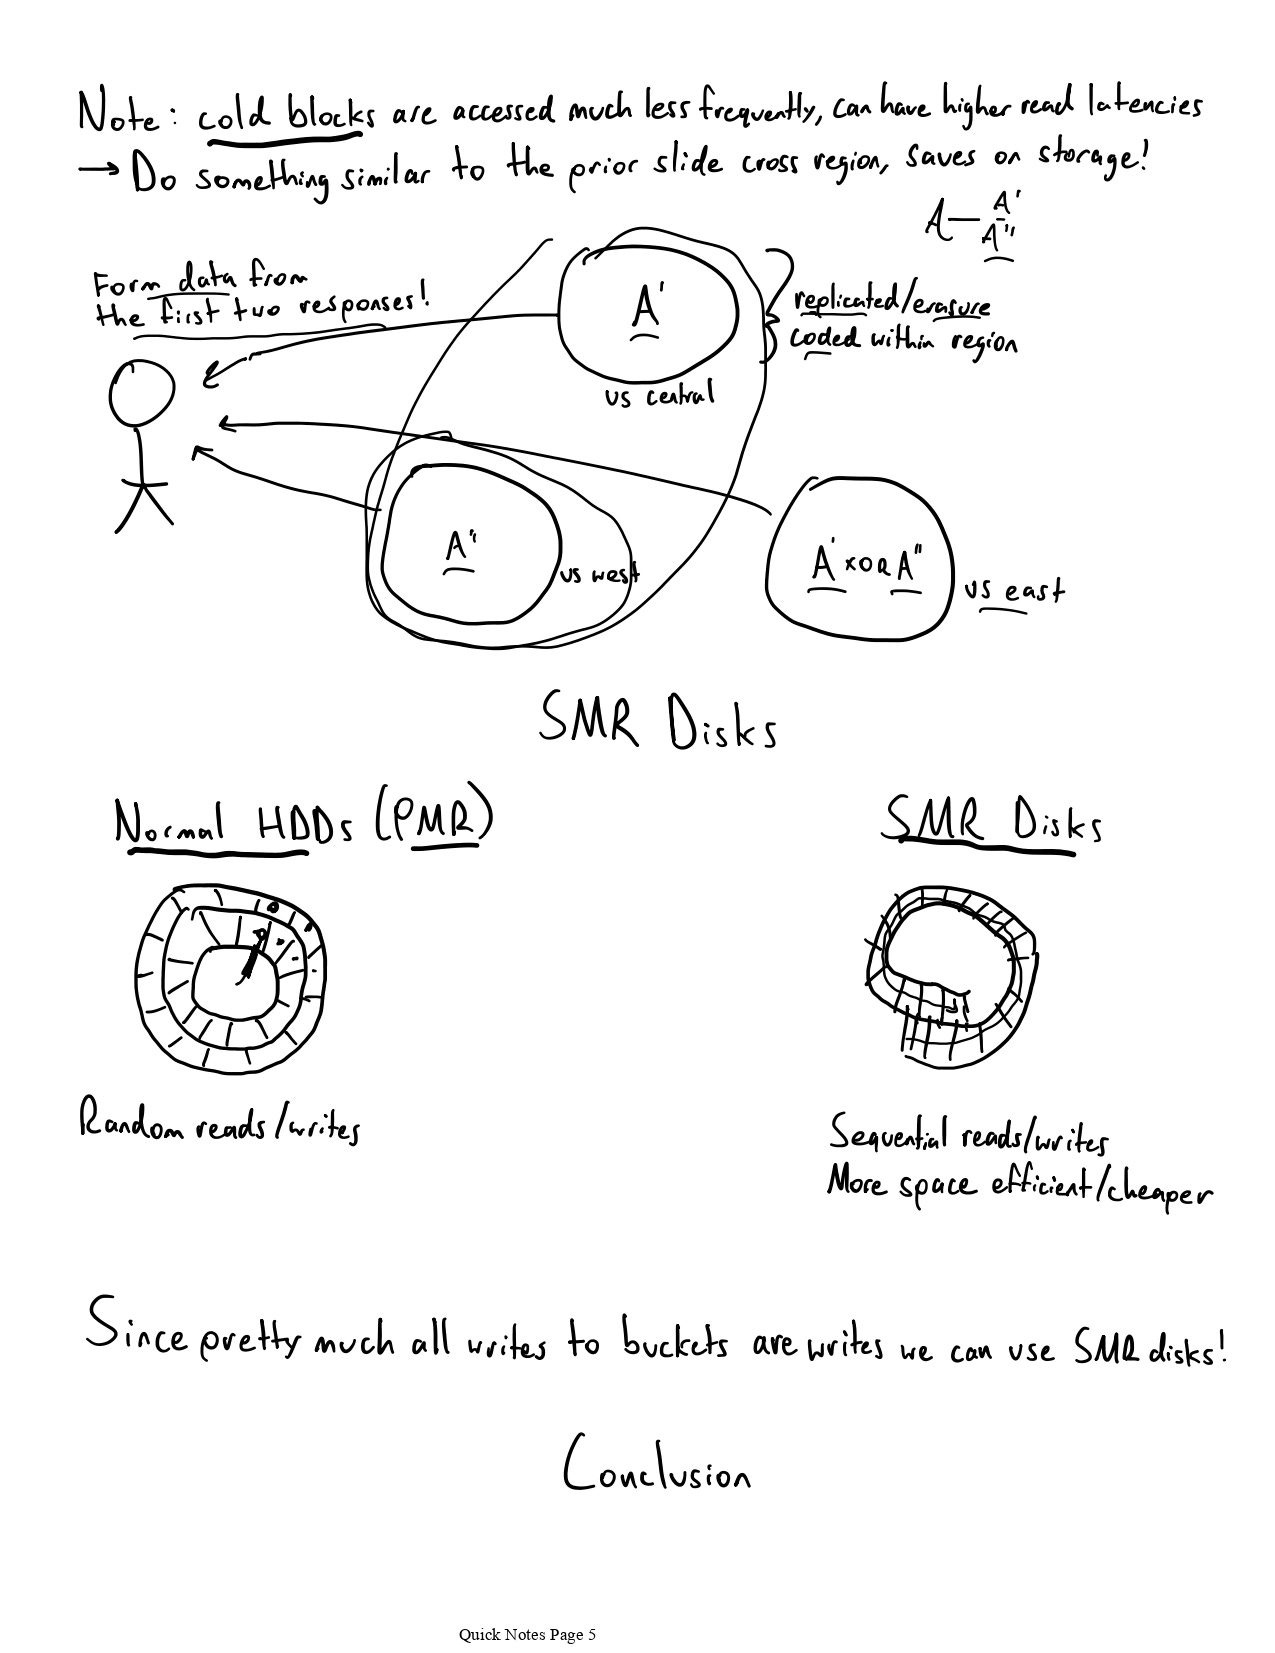 Note: cold blocks are accessed much less frequently, can have higher read latencies
→ Do something similar to the prior slide cross region, saves on storage!
A — A'
A"
Form data from
the first two responses!
A'
us central
replicated/erasure
coded within region
A"
us west
A' XOR A"
us east
SMR Disks
Normal HDDs (PMR)
SMR Disks
Random reads/writes
Sequential reads/writes
More space efficient/cheaper
Since pretty much all writes to buckets are writes we can use SMR disks!
Conclusion
Quick Notes Page 5